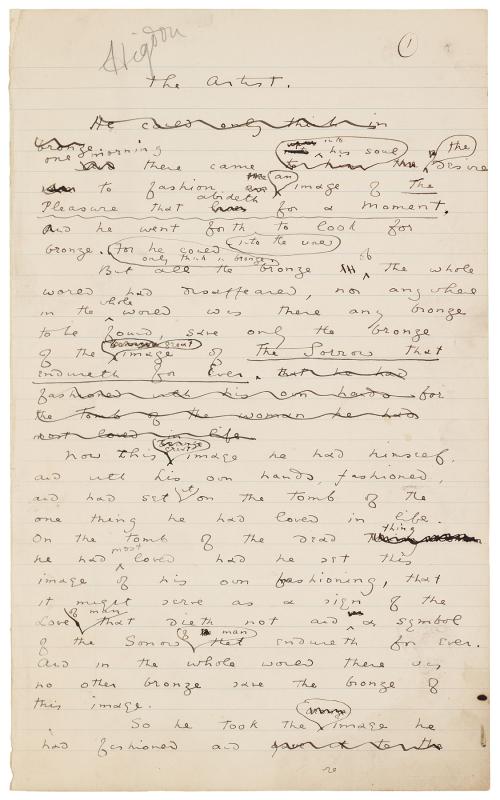 Higdon
1
The Artist.
He could only think in
bronze.
one morning there came into his soul the desire
to fashion an image of The
Pleasure that abideth for a Moment.
And he went forth to look for
bronze. for he could into the world
only think in bronze
But all the bronze of the whole
world had disappeared, nor anywhere
in the whole world was there any bronze
to be found, save only the bronze
of the image of The Sorrow that
endureth for Ever. that he had
fashioned with his own hands for
the tomb of the woman he had
most loved in life
Now this image he had himself,
and with his own hands, fashioned,
and had set it on the tomb of the
one thing he had loved in life.
On the tomb of the dead thing
he had most loved had he set this
image of his own fashioning, that
it might serve as a sign of the
Love of man that dieth not and a symbol
of the Sorrow of man that endureth for Ever.
And in the whole world there was
no other bronze save the bronze of
this image.
So he took the image he
had fashioned and